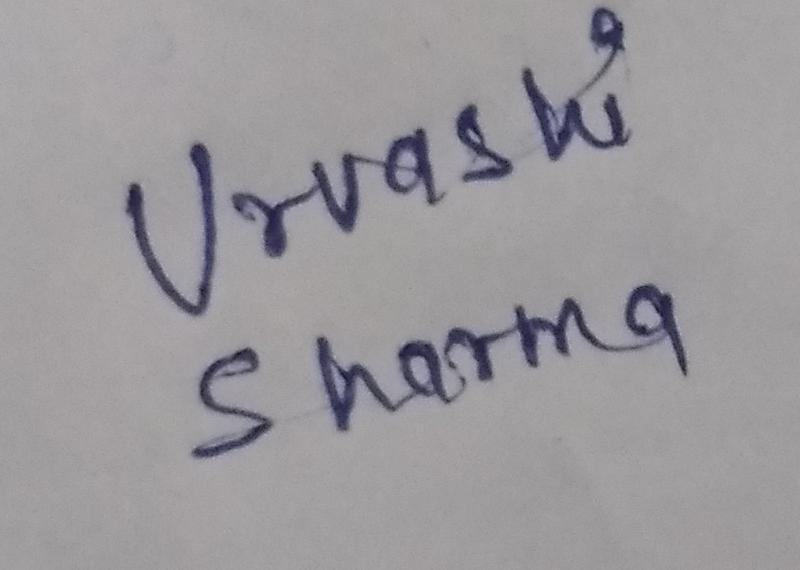 Urvashi
Sharma